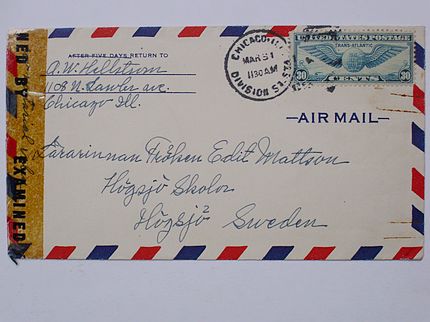 NED BY
EXAMINED
AFTER FIVE DAYS RETURN TO
A. W. Hellstrom
1108 N. Lawler ave.
Chicago Ill.
CHICAGO, ILL.
MAR 31
11 30 AM
DIVISION STA.
UNITED STATES POSTAGE
TRANS-ATLANTIC
30 CENTS 30
AIR MAIL
Lärarinnan Fröken Edit Mattson
Högsjö Skolor
Högsjö 2
Sweden